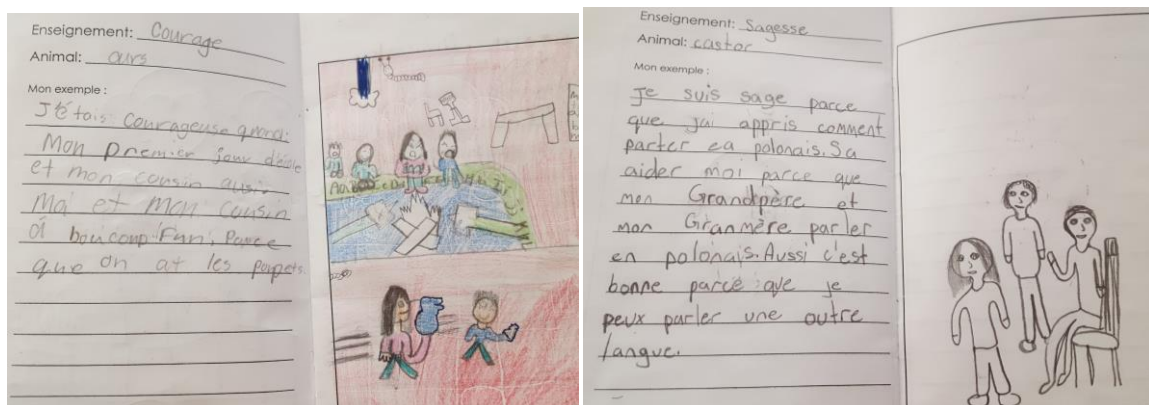 Enseignement: Courage
Animal: ours
Mon exemple :
J'étois courageuse quand.
Mon premier jour d'école
et mon cousin ausi.
Moi et mon cousin
boucoup Fun. Parce
que on at les poupets.
Enseignement: Sagesse
Animal: castor
Mon exemple :
Je suis sage parce
que j'ai appris comment
parter ea polonais. Sa
aider moi parce que
mon Grandpère et
mon Granmère parler
en polonais. Aussi c'est
bonne parce que je
peux parler une outre
langue.